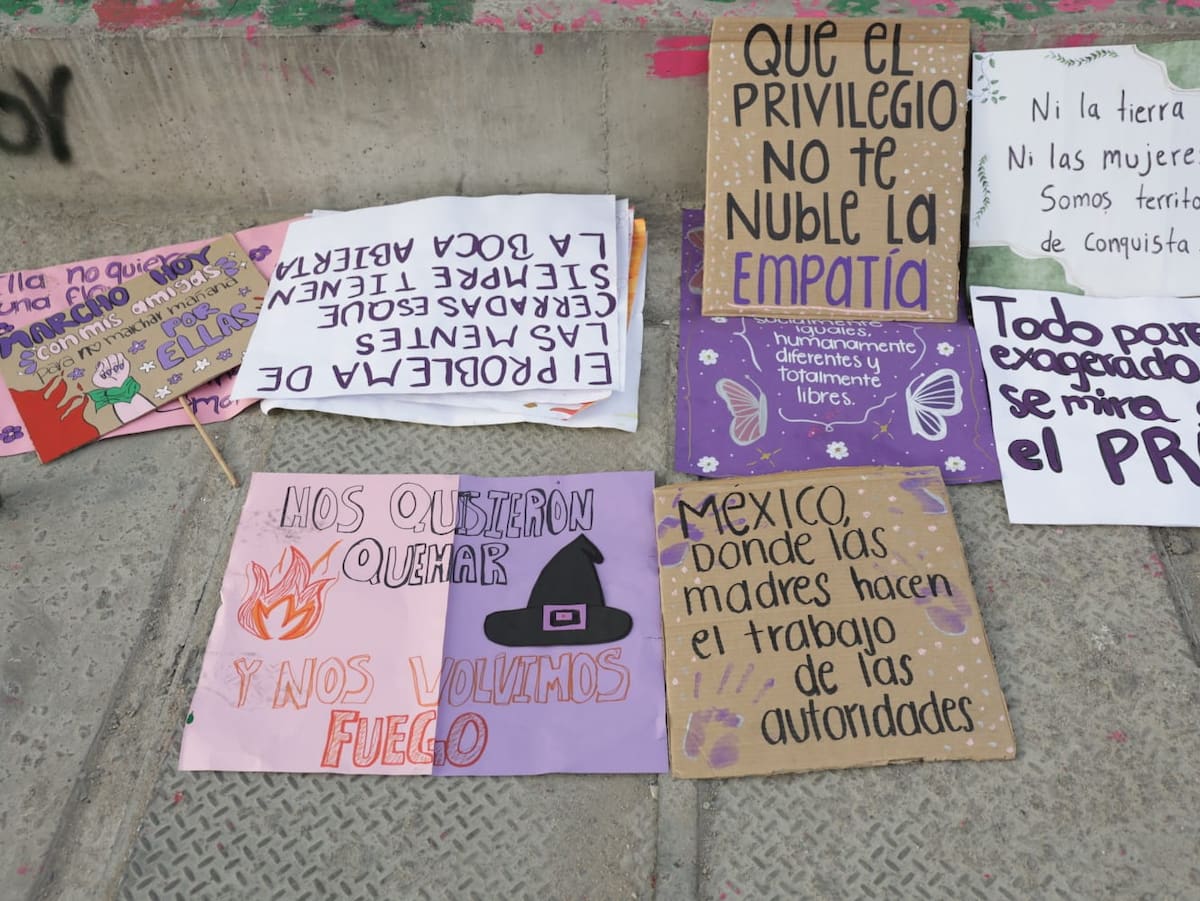 QUE EL
PRIVILEGIO
NO TE
NUBLE LA
EMPATÍA
Ni la tierra
Ni las mujeres
Somos
de Conquista
MARCHO HOY
con mis amigas
para no marchar mañana
POR
ELLAS
El PROBLEMA DE
LAS MENTES
CERRADAS ES QUE
SIEMPRE TIENEN
LA BOCA ABIERTA
iguales,
humanamente
diferentes y
totalmente
libres.
Todo
exagerado
se mira
el
NOS QUISIERON
QUEMAR
Y NOS VOLVIMOS
FUEGO
MÉXICO,
DONDE las
madres hacen
el trabajo
de las
autoridades